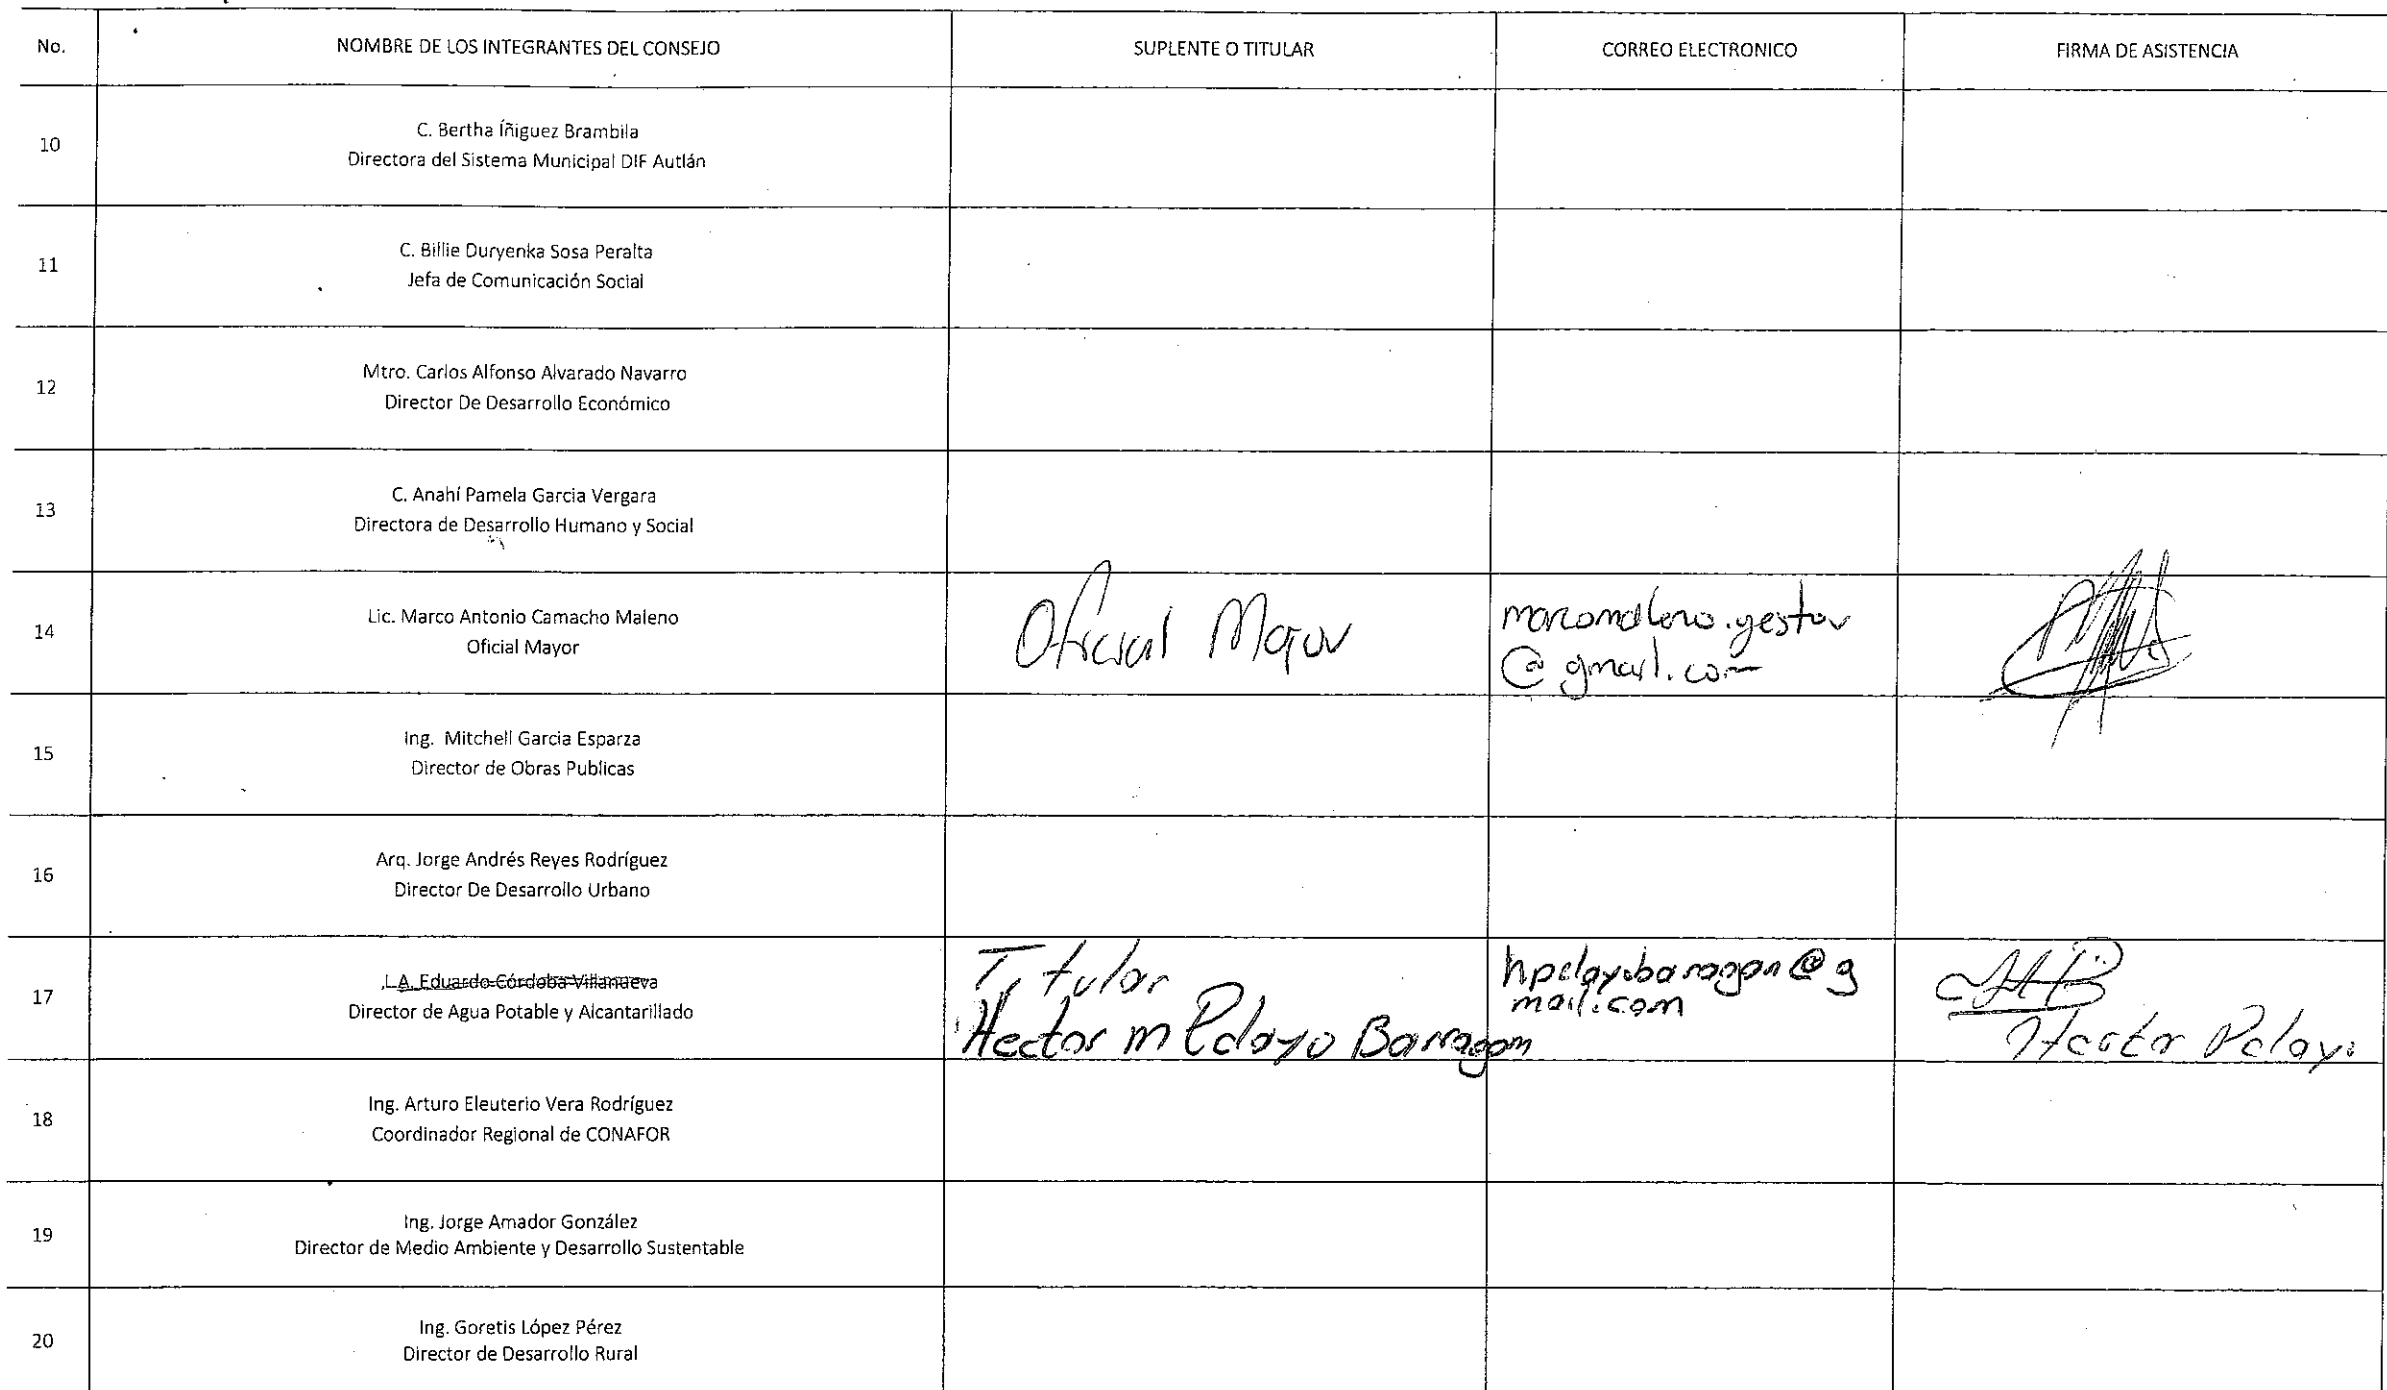 No.
NOMBRE DE LOS INTEGRANTES DEL CONSEJO
SUPLENTE O TITULAR
CORREO ELECTRONICO
FIRMA DE ASISTENCIA
10
C. Bertha Íñiguez Brambila
Directora del Sistema Municipal DIF Autlán
11
C. Billie Duryenka Sosa Peralta
Jefa de Comunicación Social
12
Mtro. Carlos Alfonso Alvarado Navarro
Director De Desarrollo Económico
13
C. Anahí Pamela Garcia Vergara
Directora de Desarrollo Humano y Social
14
Lic. Marco Antonio Camacho Maleno
Oficial Mayor
Oficial Mayor
marcomaleno.gestor
@gmail.com
15
Ing. Mitchell Garcia Esparza
Director de Obras Publicas
16
Arq. Jorge Andrés Reyes Rodríguez
Director De Desarrollo Urbano
17
L.A. Eduardo Córdoba Villanueva
Director de Agua Potable y Alcantarillado
Titular
Hector m Pelayo Barragan
hpelayobaragan@g
mail.com
Hector Pelayo
18
Ing. Arturo Eleuterio Vera Rodríguez
Coordinador Regional de CONAFOR
19
Ing. Jorge Amador González
Director de Medio Ambiente y Desarrollo Sustentable
20
Ing. Goretis López Pérez
Director de Desarrollo Rural